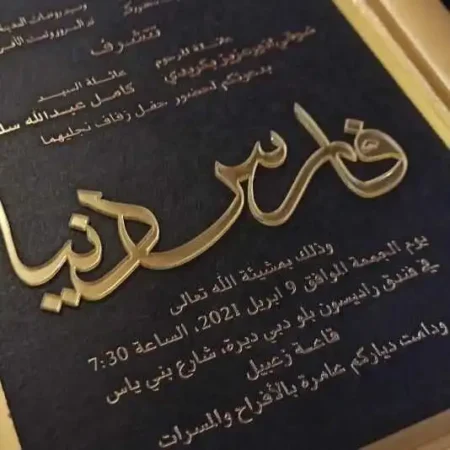 نتشرف
عائلة المرحوم
عائلة السيد
كامل عبدالله
بدعوتكم لحضور حفل زفاف نجليهما
فارس دنيا
وذلك بمشيئة الله تعالى
يوم الجمعة الموافق 9 ابريل 2021، الساعة 7:30
في فندق راديسون بلو دبي ديرة، شارع بني ياس
قاعة زعبيل
ودامت دياركم عامرة بالأفراح والمسرات